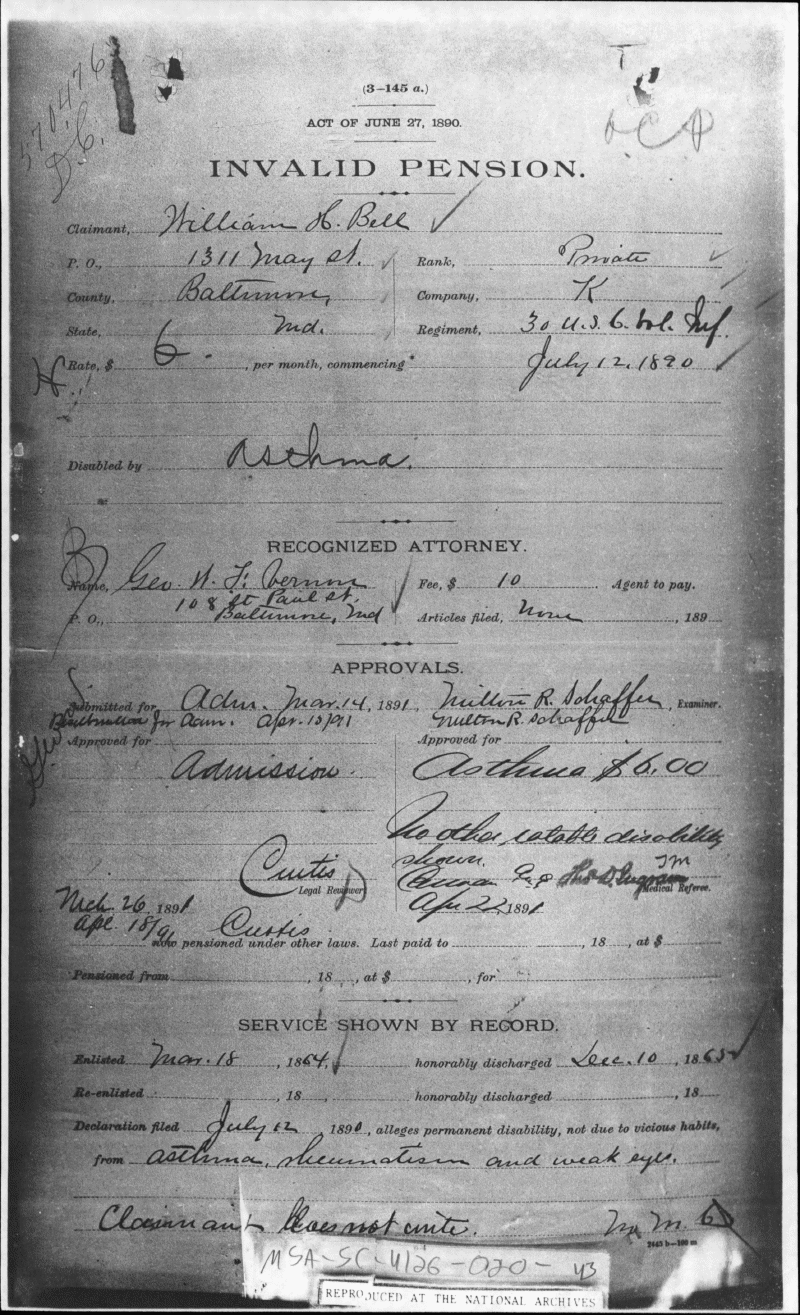 570476
D.C.
(3-145 a.)
ACT OF JUNE 27, 1890.
INVALID PENSION.
Claimant, William H. Bell
P. O., 1311 May St. Rank, Private
County, Baltimore, Company, K
State, Md. Regiment, 30 U.S.C. Vol. Inf.
Rate, $ 6. , per month, commencing* July 12, 1890
Disabled by Asthma.
RECOGNIZED ATTORNEY.
Name, Geo. W. F. Vernon Fee, $ 10 Agent to pay.
108 St Paul St.
P. O., Baltimore, Md Articles filed, None , 189
APPROVALS.
Submitted for Adm. Mar. 14, 1891, Milton R. Schaffer, Examiner.
for Adm. Apr. 15/91 Milton R. Schaffer
Approved for Approved for
Admission. Asthma $6.00
No other ratable disability
shown.
Curtis
Legal Reviewer Medical Referee.
Mch. 26 1891 Apr 22, 1891
Apl 18/91 Curtis
Now pensioned under other laws. Last paid to , 18 , at $
Pensioned from , 18 , at $ , for
SERVICE SHOWN BY RECORD.
Enlisted Mar. 18 , 1864, honorably discharged Dec. 10, 1865
Re-enlisted , 18 honorably discharged , 18
Declaration filed July 12 , 1890, alleges permanent disability, not due to vicious habits,
from asthma, rheumatism and weak eyes.
Claimant does not write.
MSA-SC-4126-020- 43
REPRODUCED AT THE NATIONAL ARCHIVES